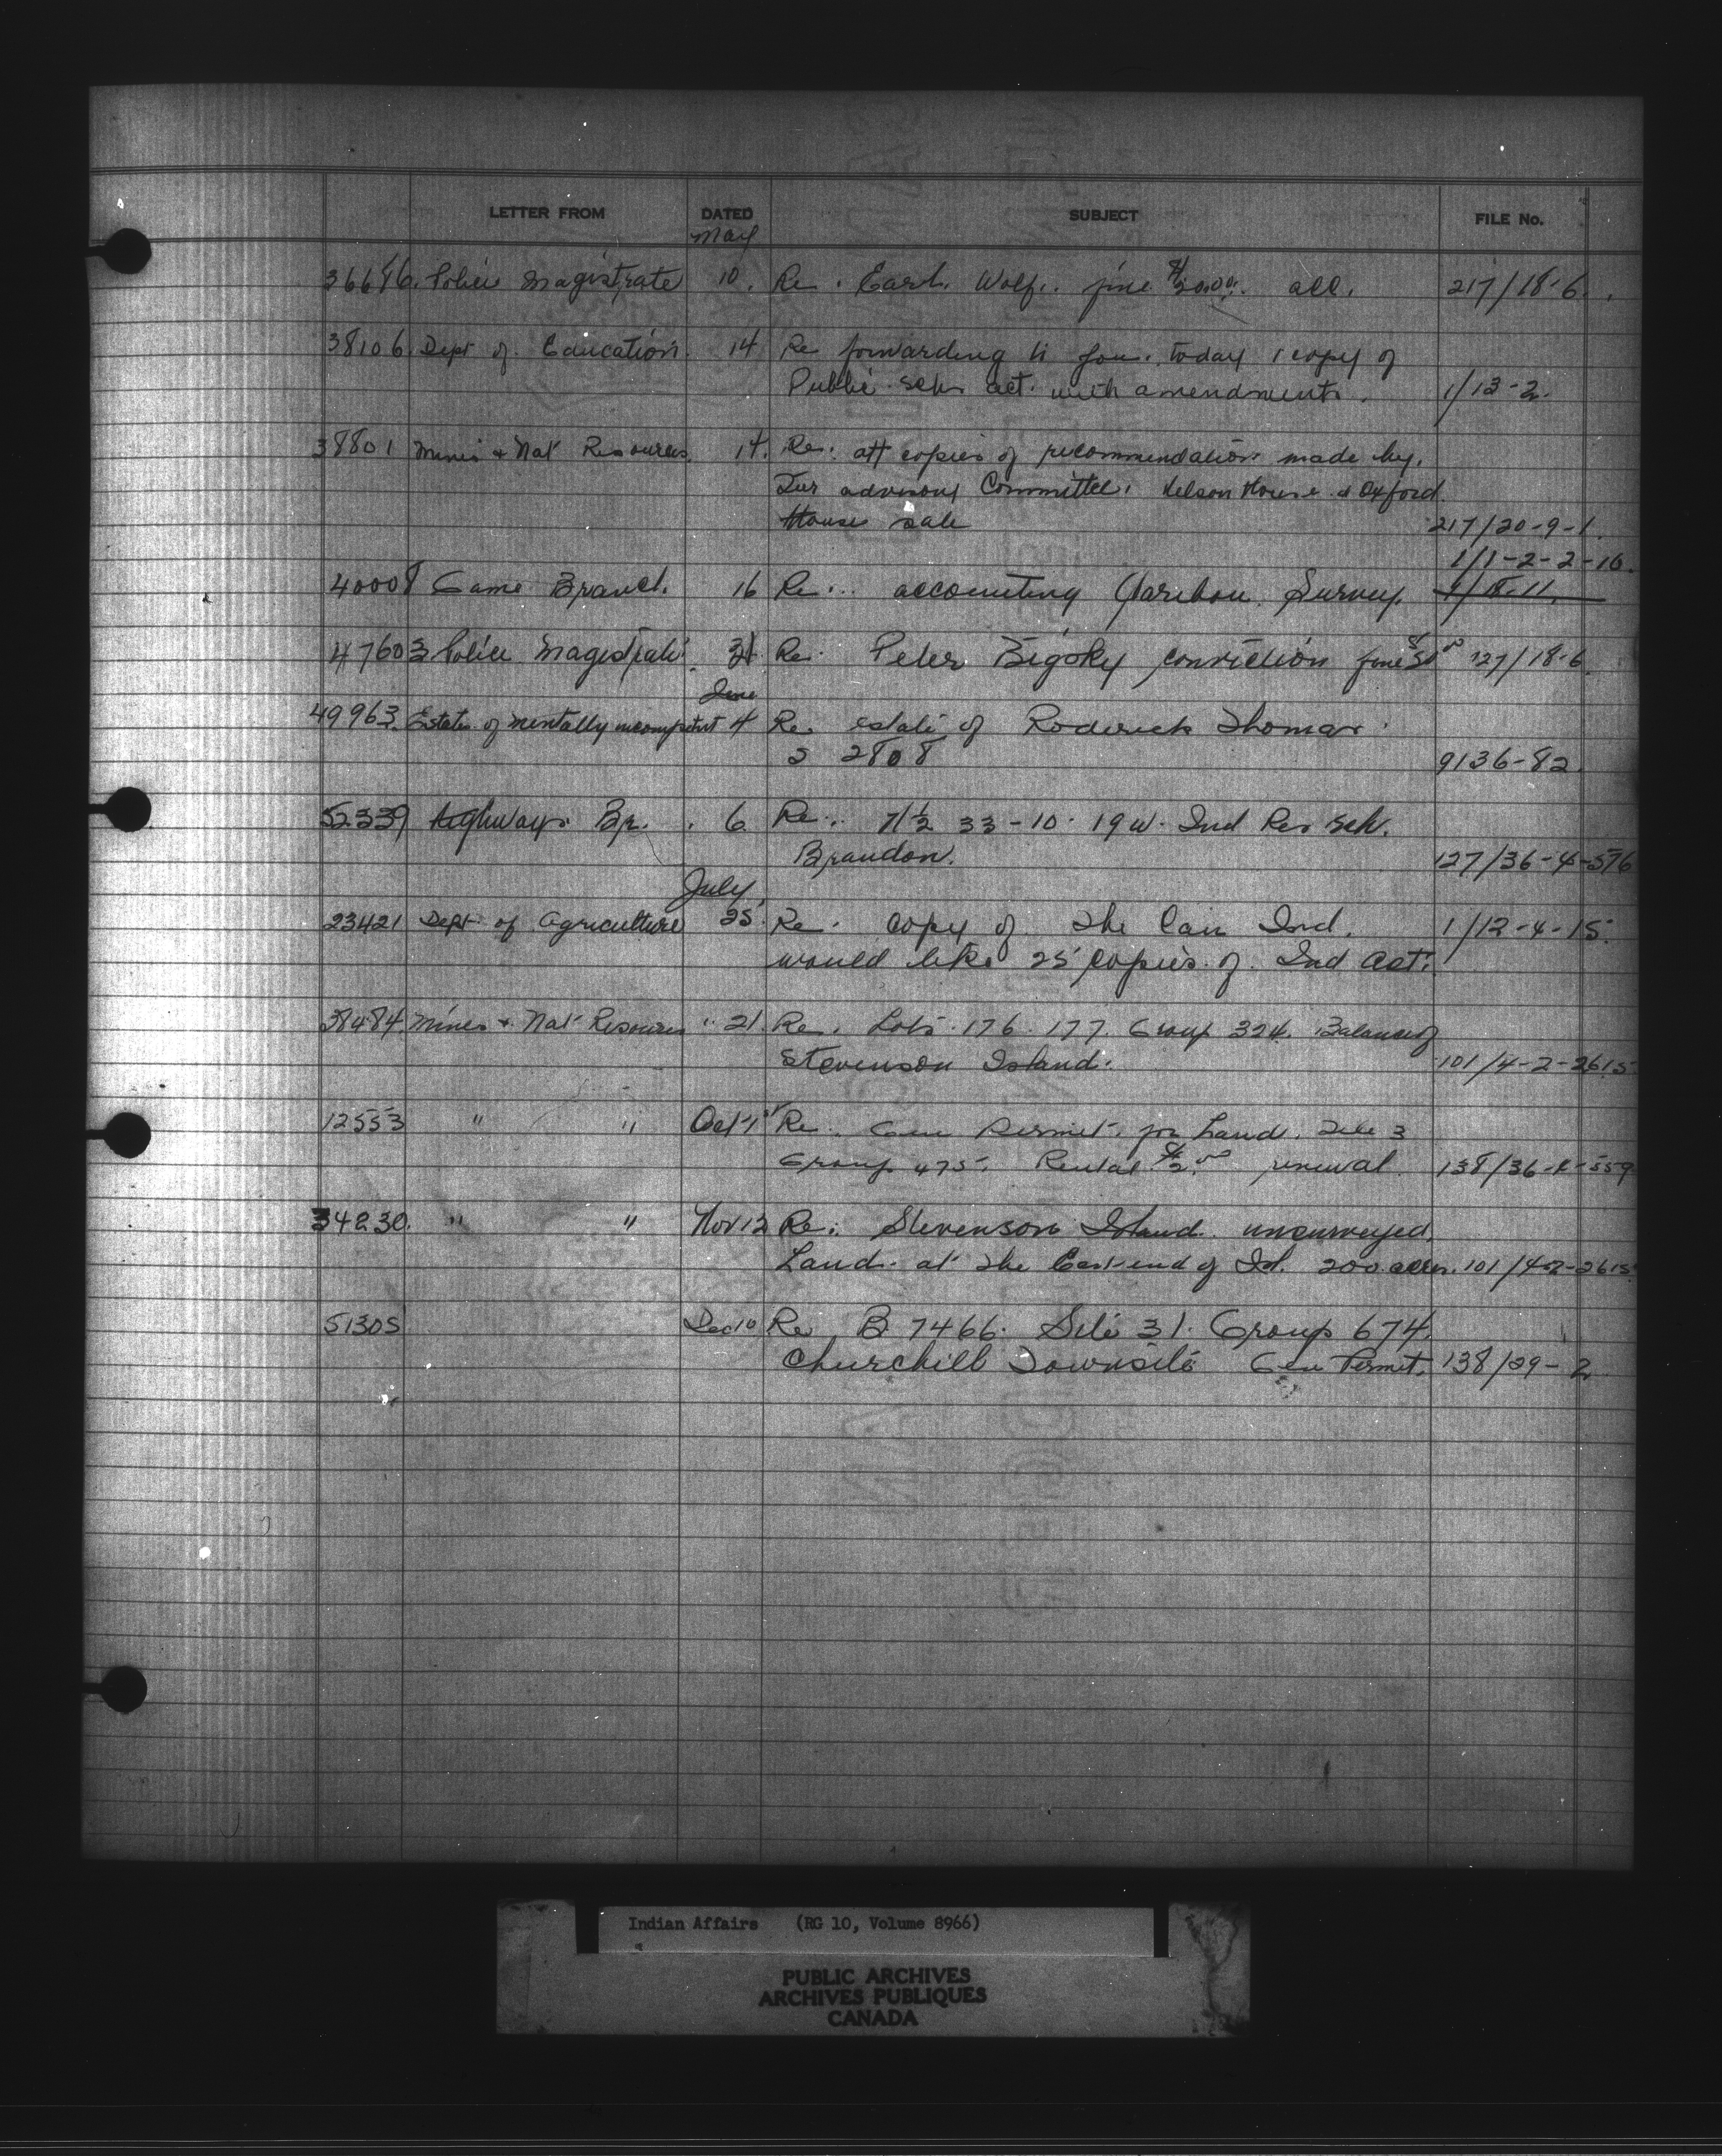 LETTER FROM DATED SUBJECT FILE No.
May
36686. Police Magistrate 10. Re. Earl. Wolf.. fine $20.00. all. 217/18-6.
38106. Dept of Education. 14 Re forwarding to you. today 1 copy of
Public Sch. act. with amendments. 1/13-2.
38801 Mines & Nat Resources 14. Re: att copies of recommendations made by.
Fur advisory Committee. Nelson House & Oxford.
House sale 217/20-9-1.
1/1-2-2-16.
40008 Game Branch. 16 Re:.. accounting Caribou. Survey. 1/8-11.
47603 Police Magistrate 31 Re. Peter Bigsky conviction fine $5.00 127/18-6
June
49963. Estates of mentally incompetent 4 Re. estate of Roderick Thomas.
S 2808 9136-82.
52339 Highways Br. 6. Re.. 7 1/2 33-10-19w. Ind Res Sch.
Brandon. 127/36-4-576
July
23421 Dept of Agriculture 25. Re. copy of The Can Ind. 1/12-4-15.
would like 25 copies of. Ind Act.
38484. Mines & Nat Resources " 21. Re. Lots 176. 177. Group 324. Balance of
Stevenson Island. 101/4-2-2615
12553 " " Oct 1st Re. Gen Permit. for Land. Site 3
Group 475. Rental $2.00 renewal. 138/36-4-559
34230. " " Nov 12 Re: Stevenson Island. unsurveyed.
Land. at the East end of Isl. 200 acres. 101/4-2-2615
51305 Dec 10 Re B 7466. Site 31. Group 674.
Churchill Townsite Gen Permit. 138/29-2
Indian Affairs (RG 10, Volume 8966)
PUBLIC ARCHIVES
ARCHIVES PUBLIQUES
CANADA